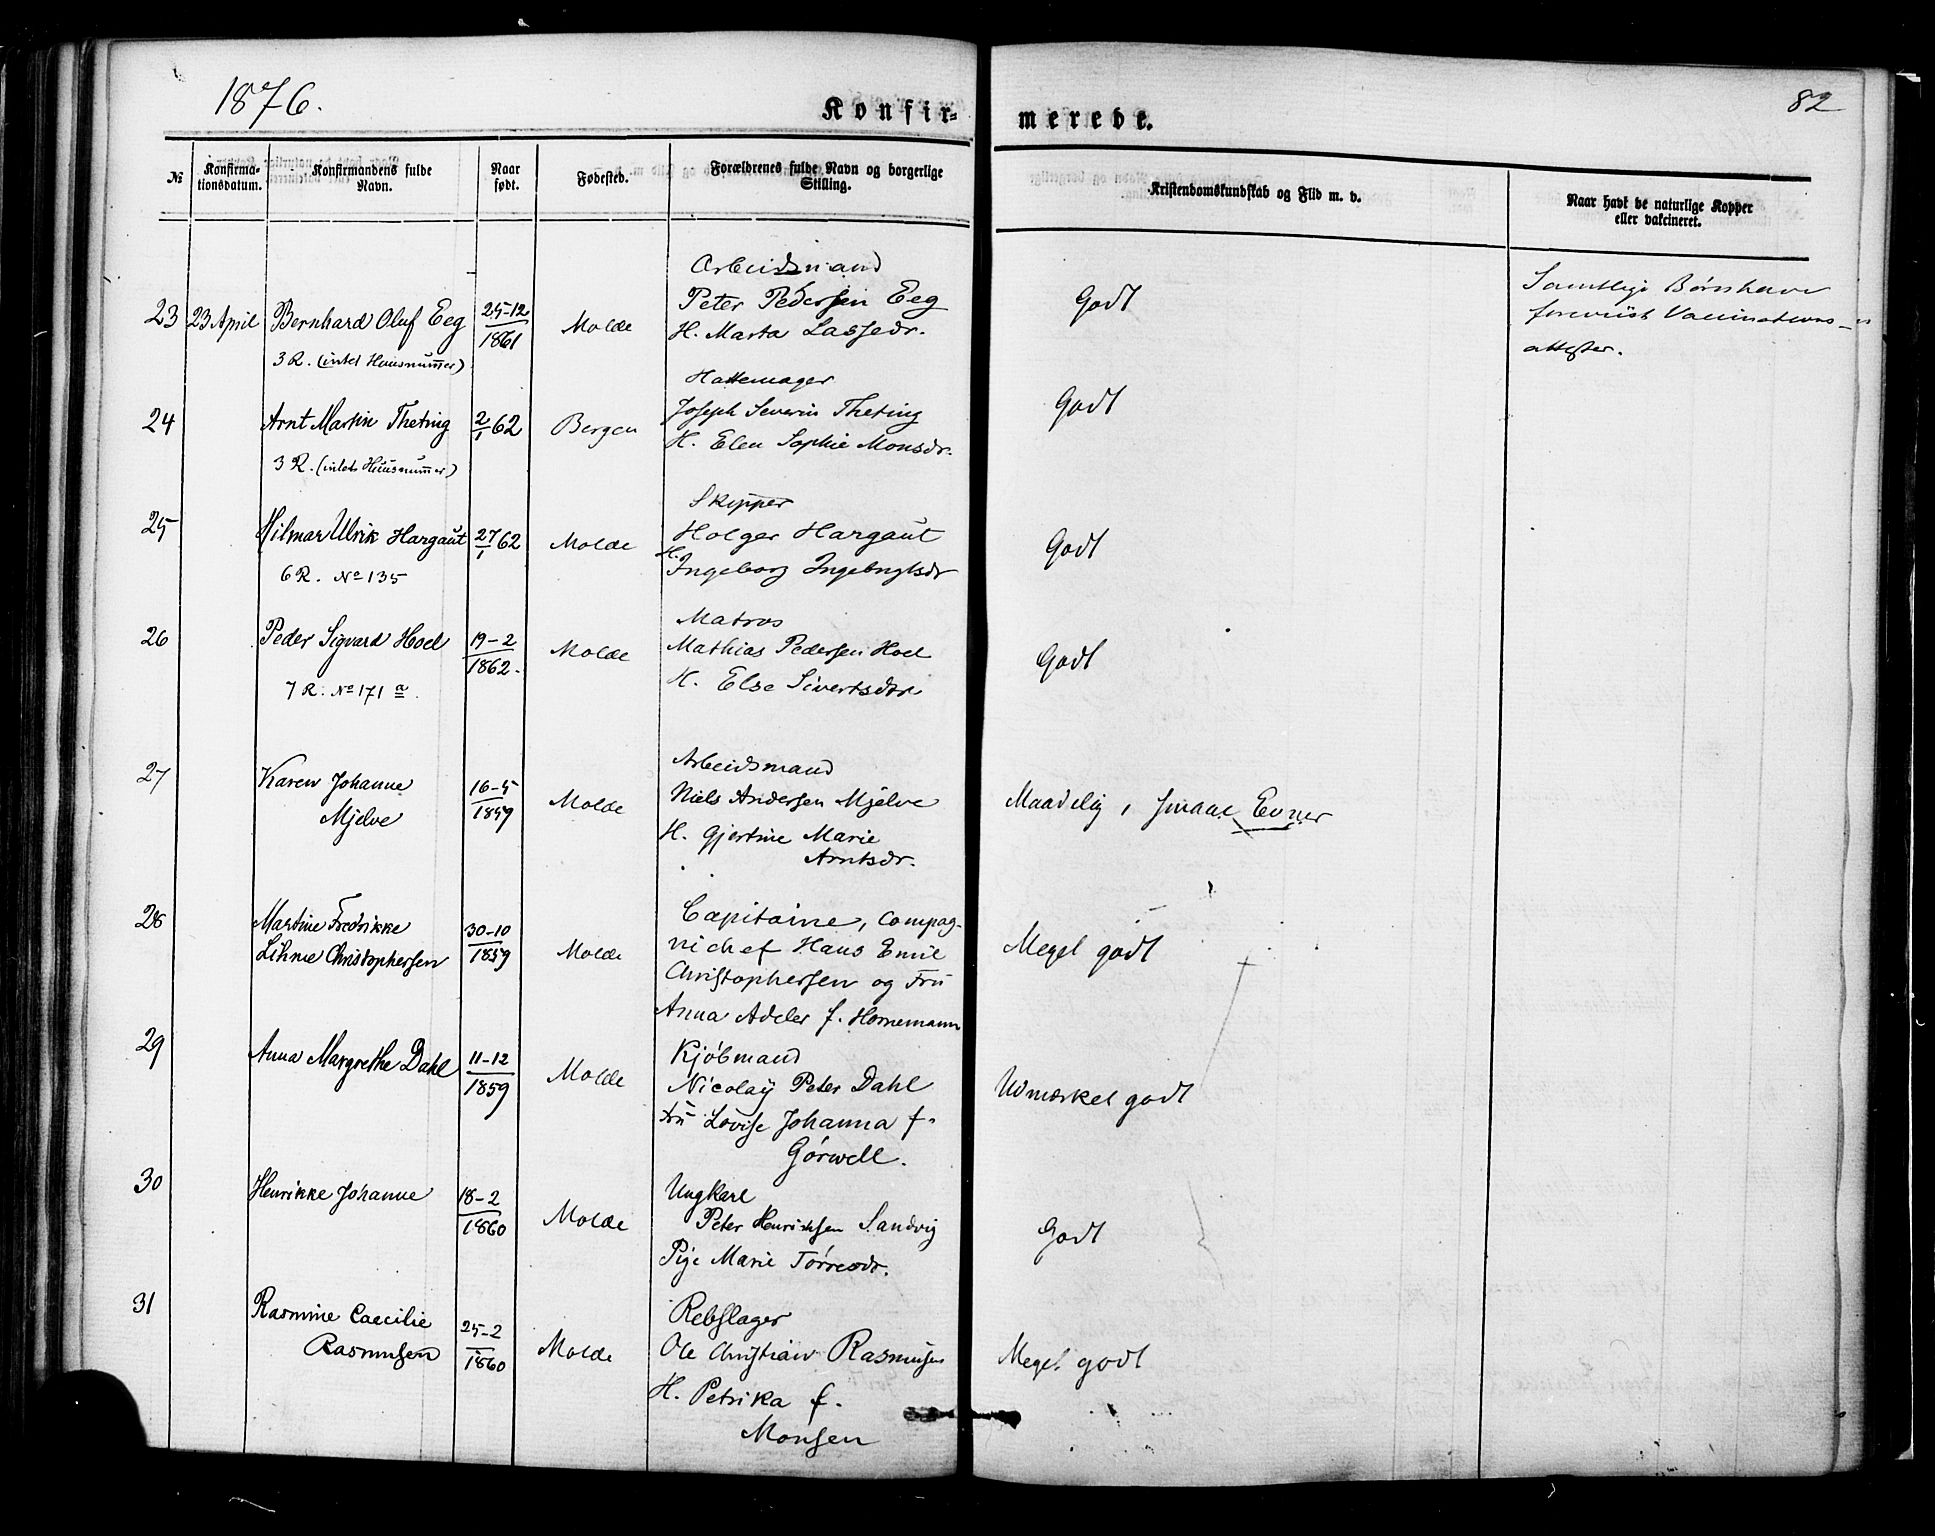 1876.
82
Konfir-
merede.
№
Konfirma-
tionsdatum.
Konfirmandens fulde
Navn.
Naar
født.
Fødested.
Forældrenes fulde Navn og borgerlige
Stilling.
Kristendomskundskab og Flid m. v.
Naar havt de naturlige Kopper
eller vakcineret.
23 23 April Bernhard Oluf Eeg 25-12 1861 Molde
3 R. (intet Huusnummer)
Arbeidsmand
Peter Pedersen Eeg
H. Marta Lassedr.
Godt
Samtlige Børn have
foreviist Vaccinations-
attester.
24 Arnt Martin Theting 2/1 62 Bergen
3 R. (intet Huusnummer)
Hattemager
Joseph Severin Theting
H. Elen Sophie Monsdr.
Godt
25 Hilmar Ulrik Hargaut 27/1 62 Molde
6 R. No 135
Skipper
Holger Hargaut
H.
Ingeborg Ingebrigtsdr
Godt
26 Peder Sigvard Hoel 19-2 1862. Molde
7 R. No 171 a.
Matros
Mathias Pedersen Hoel
H. Else Sivertsdr
Godt
27 Karen Johanne
Mjelve
16-5 1859 Molde
Arbeidsmand
Niels Andersen Mjelve
H. Gjertine Marie
Arntsdr.
Maadelig, smaae Evner
28 Martine Fredrikke
Lihme Christophersen
30-10 1859 Molde
Capitaine, Compag-
nichef Hans Emil
Christophersen og Fru
Anna Adeler f. Hornemann
Meget godt
29 Anna Margrethe Dahl 11-12 1859 Molde
Kjøbmand
Nicolay Peter Dahl
Fru Lovise Johanna f.
Gørwell.
Udmærket godt
30 Henrikke Johanne 18-2 1860 Molde
Ungkarl
Peter Henriksen Sandvig
Pige Marie Tørresdr.
Godt
31 Rasmine Caecilie
Rasmusen
25-2 1860 Molde
Rebslager
Ole Christian Rasmusen
H. Petrika f.
Monsen
Meget godt